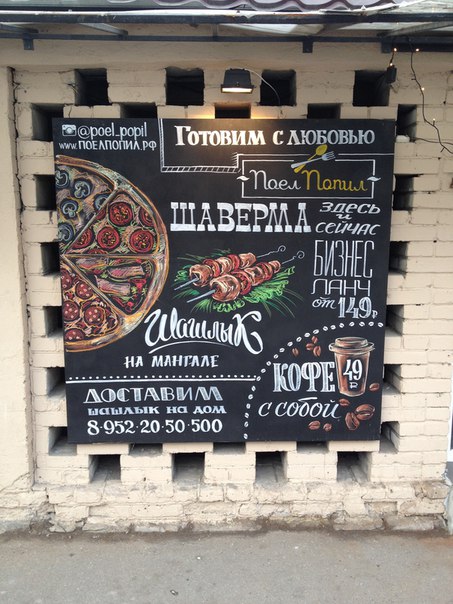 @poel_popil
www.ПОЕЛПОПИЛ.РФ
ГОТОВИМ С ЛЮБОВЬЮ
Поел Попил
ШАВЕРМА
ЗДЕСЬ
И
СЕЙЧАС
БИЗНЕС
ЛАНЧ
ОТ 149Р
Шашлык
НА МАНГАЛЕ
КОФЕ
49
Р
С СОБОЙ
ДОСТАВИМ
шашлык на дом
8·952·20·50·500